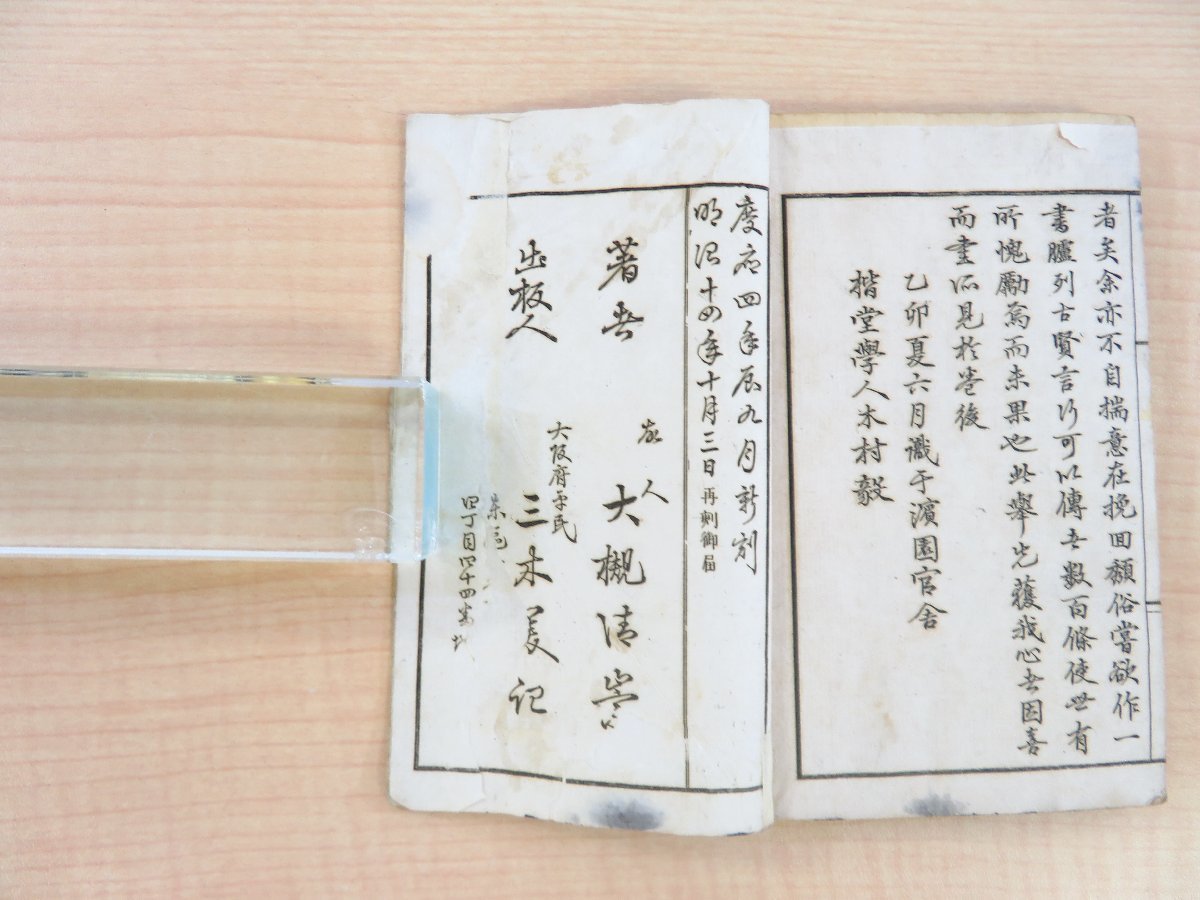 者矣余亦不自揣意在挽回頽俗嘗欲作一
書臚列古賢言行可以傳者數百條使世有
所愧勵焉而未果也此舉先獲我心者因喜
而書所見於巻後
乙卯夏六月識于濵園官舎
楷堂學人木村毅
慶応四年辰九月新刻
明治十四年十月三日再刻御届
著者
故人
大槻清崇
出板人
大阪府平民
三木美記
東區
四丁目四十四番地